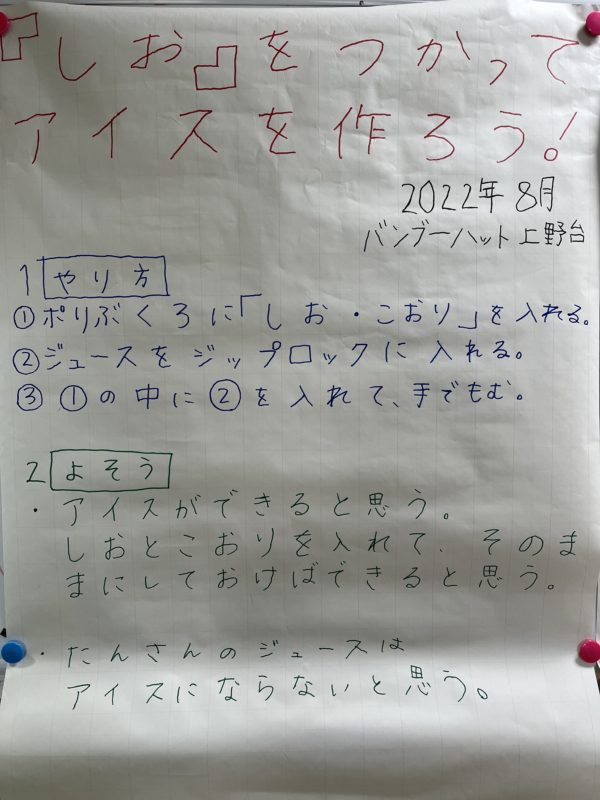 『しお』をつかって
アイスを作ろう！
2022年8月
バンブーハット上野台
1 やり方
①ポリぶくろに「しお・こおり」を入れる。
②ジュースをジップロックに入れる。
③①の中に②を入れて、手でもむ。
2 よそう
・アイスができると思う。
しおとこおりを入れて、そのま
まにしておけばできると思う。
・たんさんのジュースは
アイスにならないと思う。